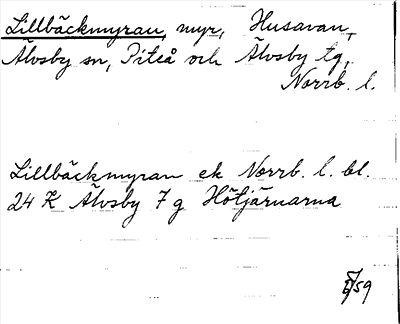 Lillbäckmyran, myr, Husavan,
Älvsby sn, Piteå och Älvsby tg,
Norrb. l.
Lillbäckmyran ek Norrb. l. bl.
24 K Älvsby 7 g Hötjärnarna